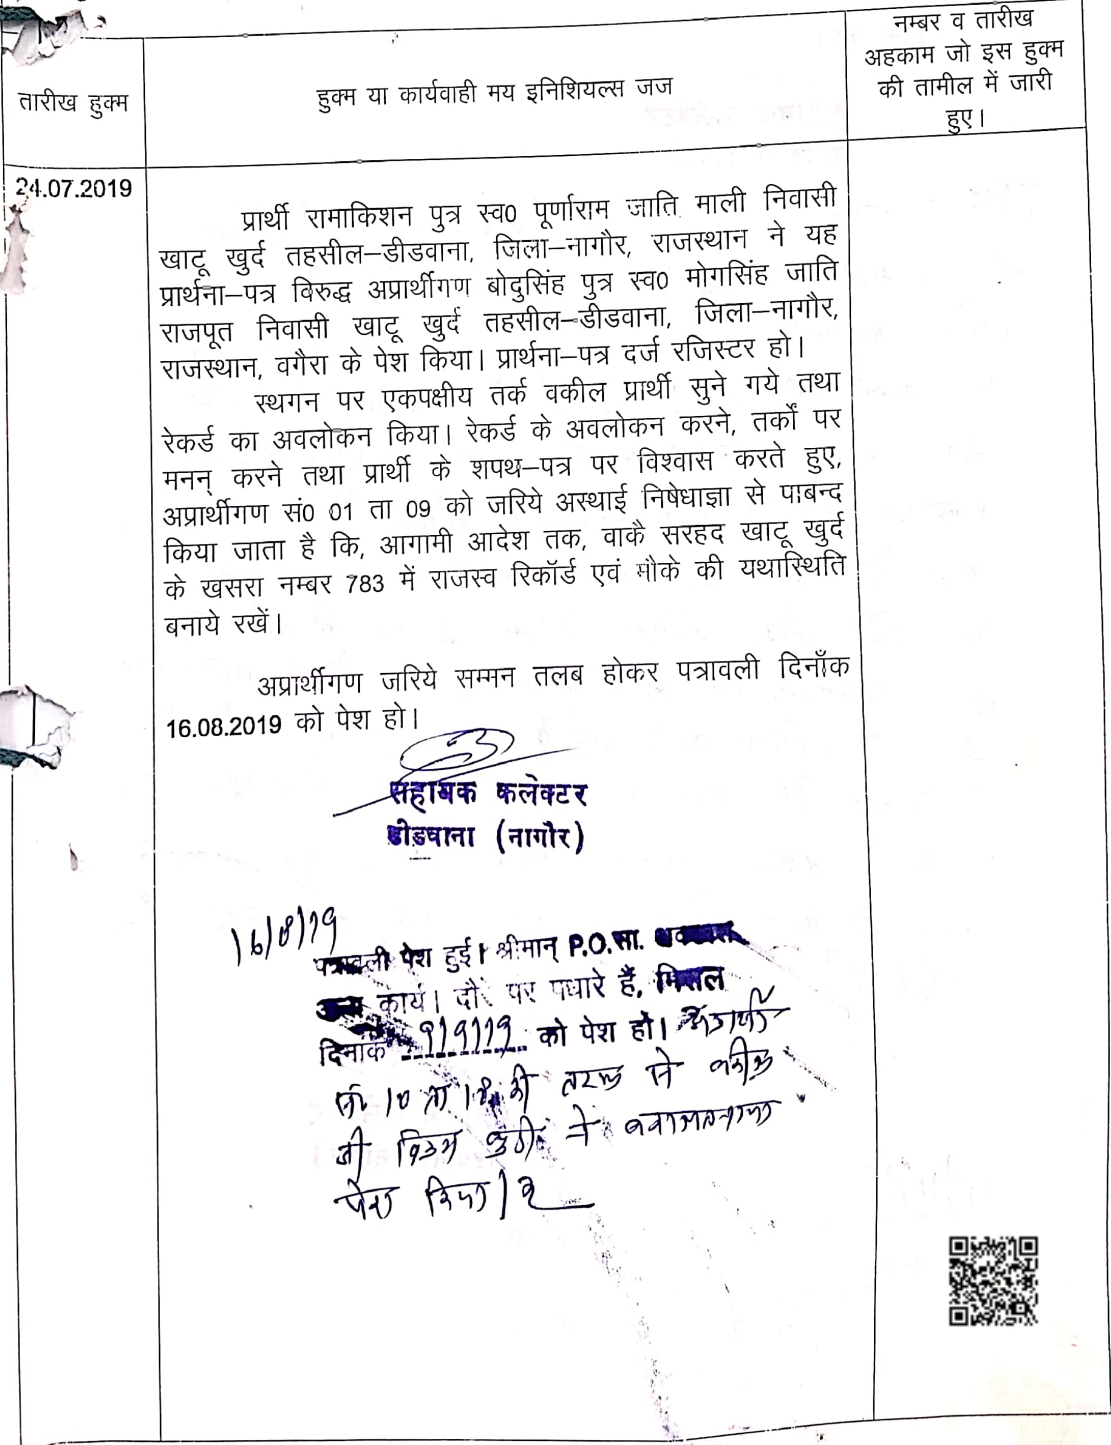 तारीख हुक्म
हुक्म या कार्यवाही मय इनिशियल्स जज
नम्बर व तारीख
अहकाम जो इस हुक्म
की तामील में जारी
हुए।
24.07.2019
प्रार्थी रामाकिशन पुत्र स्व0 पूर्णाराम जाति माली निवासी
खाटू खुर्द तहसील–डीडवाना, जिला–नागौर, राजस्थान ने यह
प्रार्थना–पत्र विरुद्ध अप्रार्थीगण बोदुसिंह पुत्र स्व0 मोगसिंह जाति
राजपूत निवासी खाटू खुर्द तहसील–डीडवाना, जिला–नागौर,
राजस्थान, वगैरा के पेश किया। प्रार्थना–पत्र दर्ज रजिस्टर हो।
स्थगन पर एकपक्षीय तर्क वकील प्रार्थी सुने गये तथा
रेकर्ड का अवलोकन किया। रेकर्ड के अवलोकन करने, तर्कों पर
मनन् करने तथा प्रार्थी के शपथ–पत्र पर विश्वास करते हुए,
अप्रार्थीगण सं0 01 ता 09 को जरिये अस्थाई निषेधाज्ञा से पाबन्द
किया जाता है कि, आगामी आदेश तक, वाकै सरहद खाटू खुर्द
के खसरा नम्बर 783 में राजस्व रिकॉर्ड एवं मौके की यथास्थिति
बनाये रखें।
अप्रार्थीगण जरिये सम्मन तलब होकर पत्रावली दिनाँक
16.08.2019 को पेश हो।
सहायक कलेक्टर
डीडवाना (नागौर)
16/8/19
पत्रावली पेश हुई। श्रीमान् P.O.सा.
कार्य। दौरे पर पधारे हैं, मिसल
दिनांक 9/9/19 को पेश हो। अप्रार्थी
सं 10 ता 18 की तरफ से वकील
श्री विजय ने वकालतनामा
पेश किया।